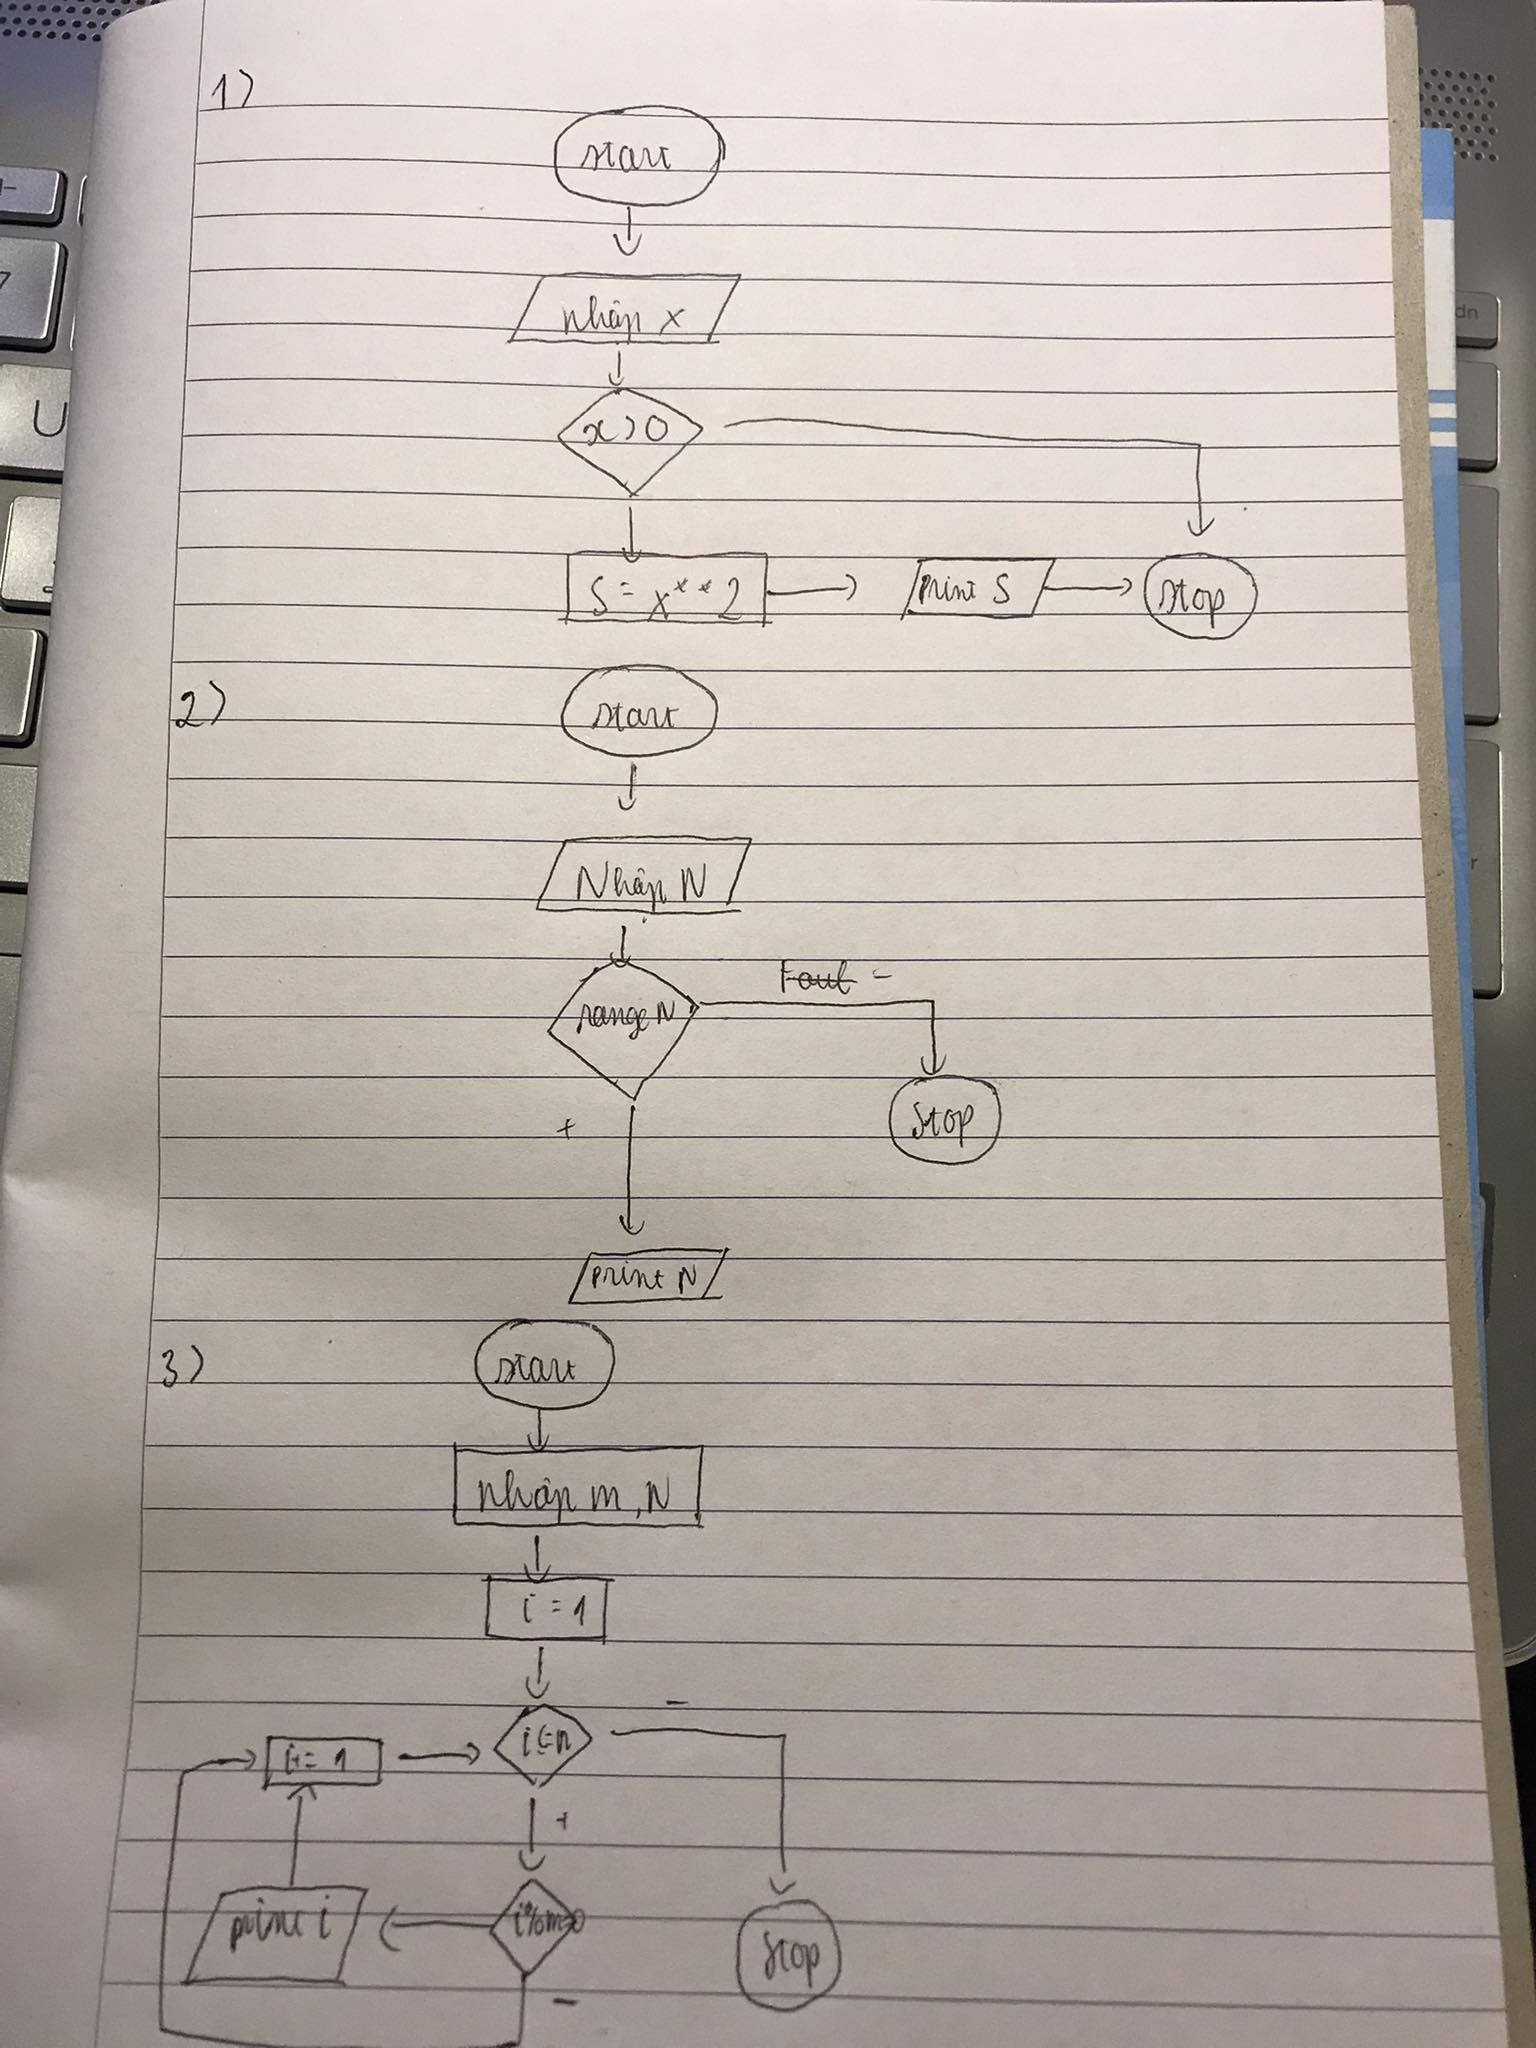 1)
start
nhập x
x>0
S = x**2
print S
stop
2)
start
Nhập N
range N
-
Stop
+
print N
3)
start
nhập m, N
i = 1
i<=n
-
i+= 1
+
i%m=0
print i
-
Stop